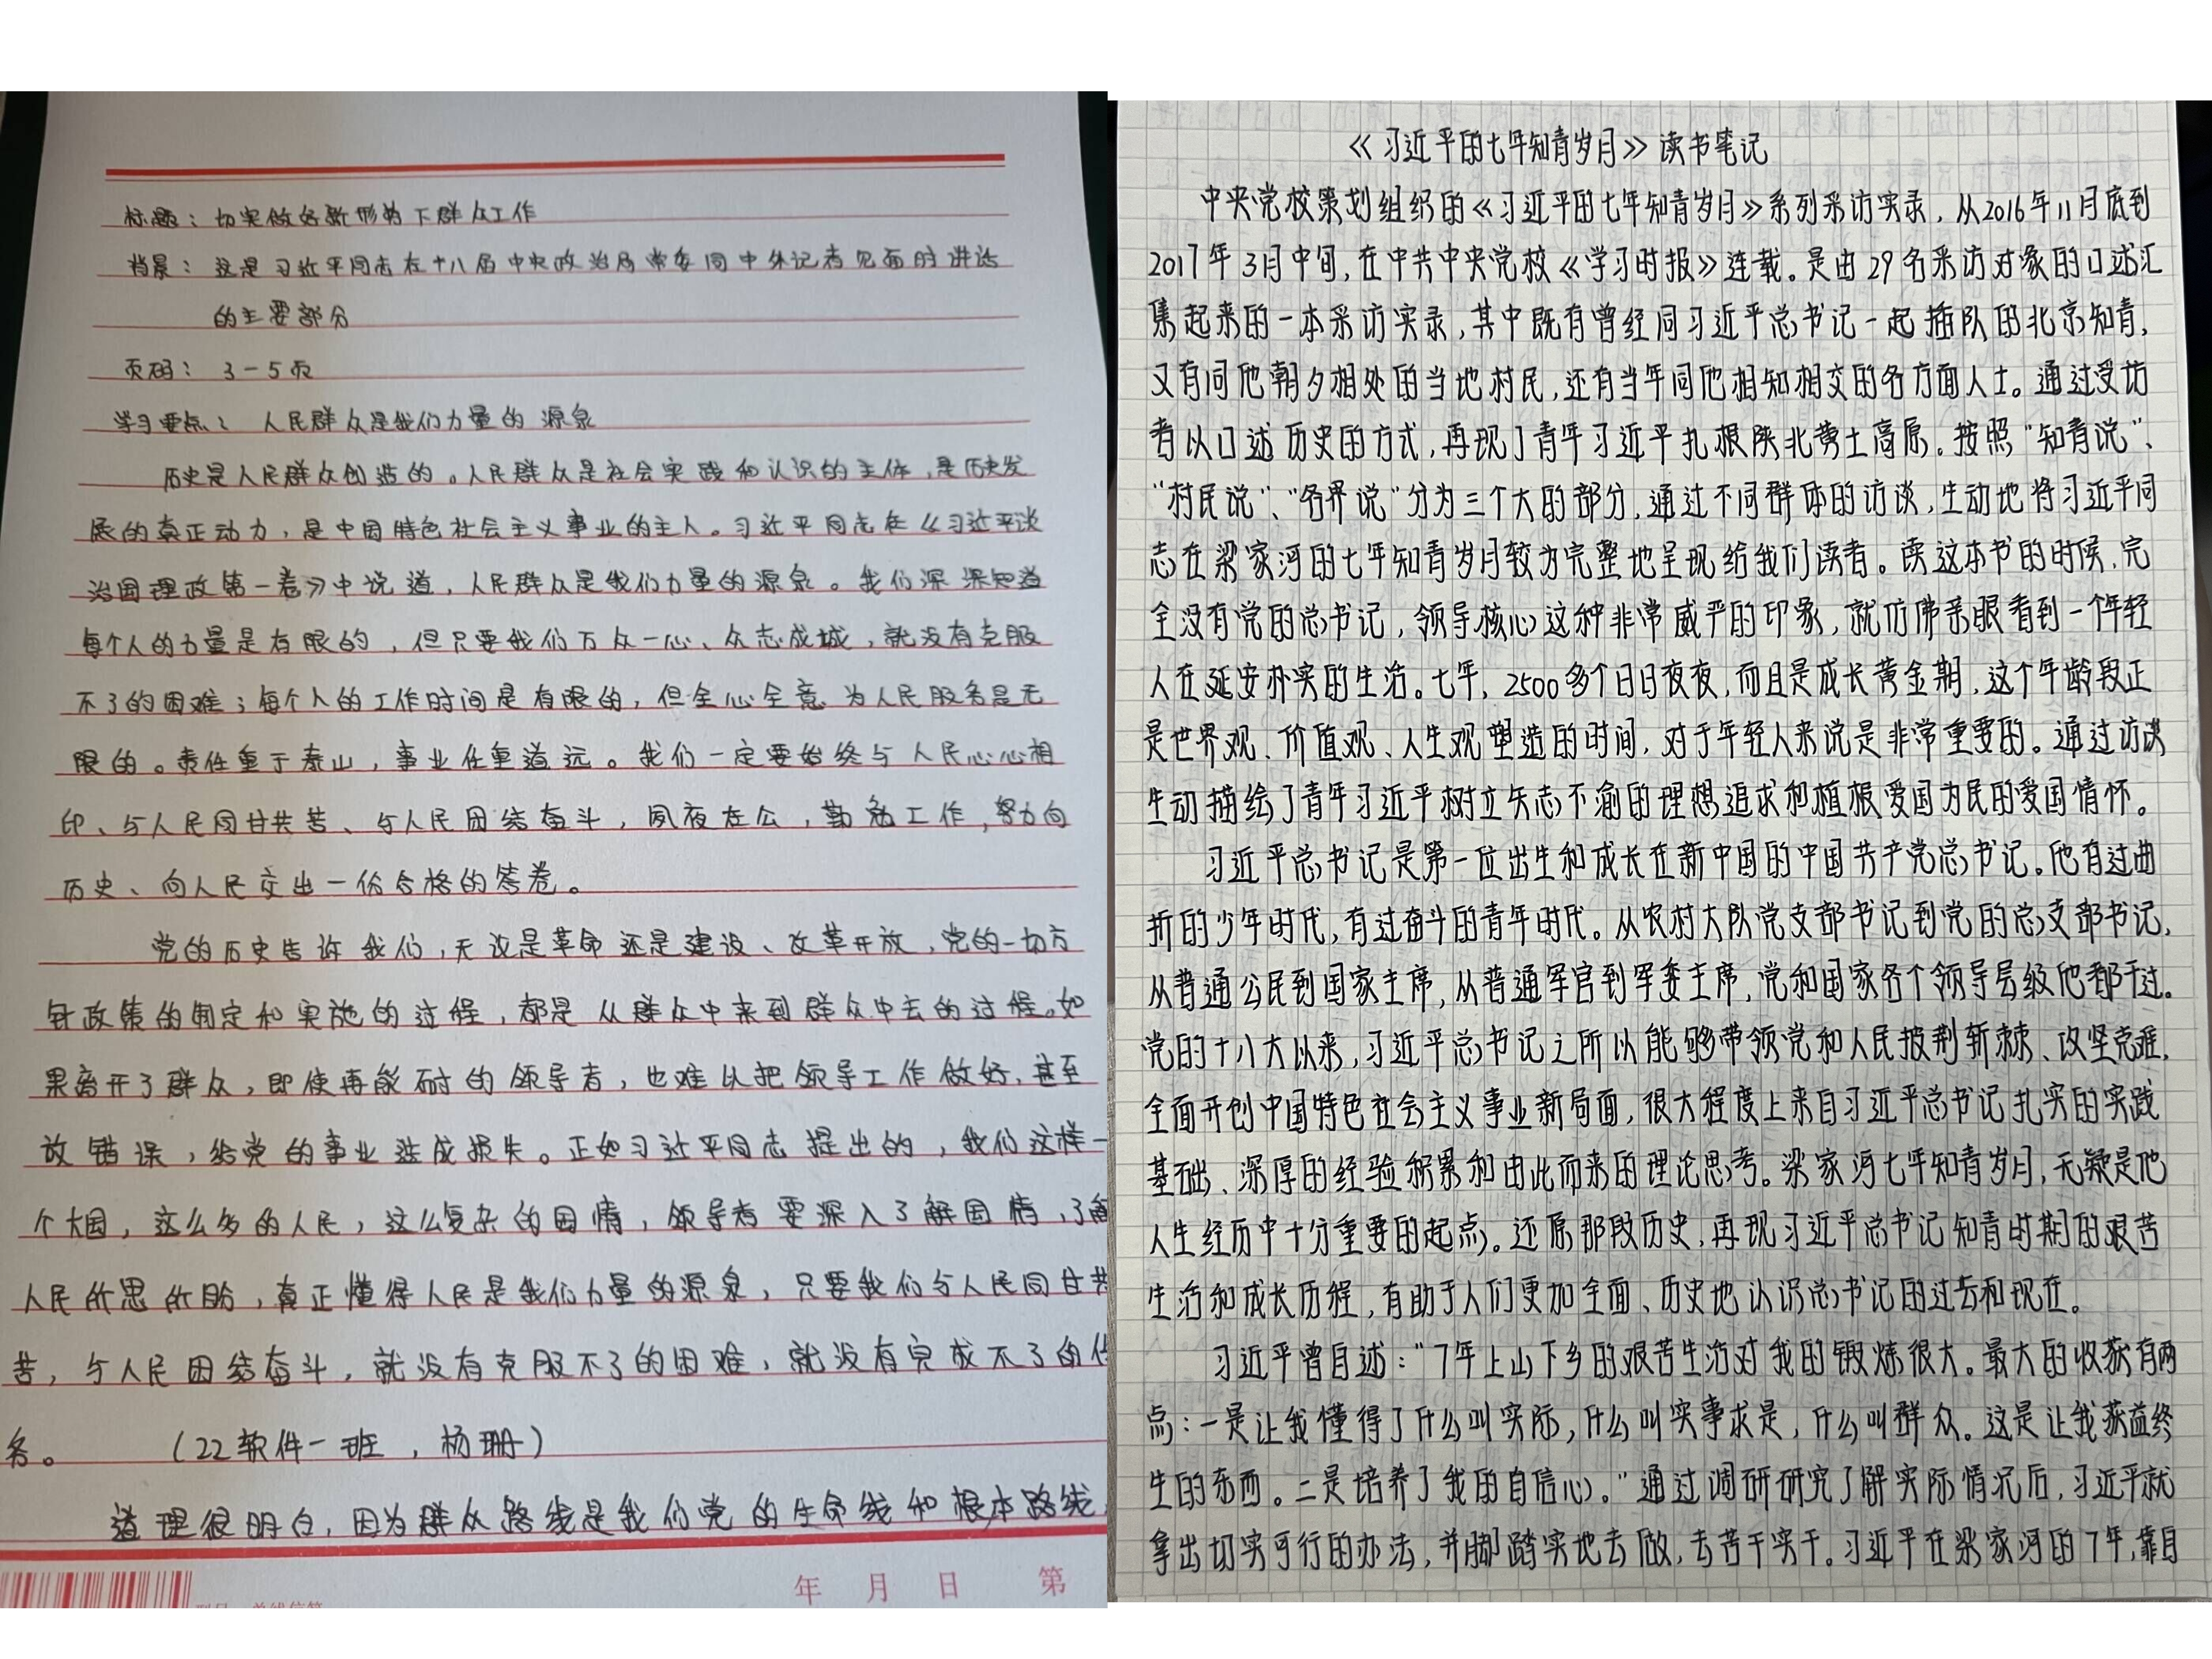 标题：切实做好新形势下群众工作
背景：这是习近平同志在十八届中央政治局常委同中外记者见面时讲话
的主要部分
页码：3-5页
学习要点：人民群众是我们力量的源泉
历史是人民群众创造的。人民群众是社会实践和认识的主体，是历史发
展的真正动力，是中国特色社会主义事业的主人。习近平同志在《习近平谈
治国理政第一卷》中说道，人民群众是我们力量的源泉。我们深深知道
每个人的力量是有限的，但只要我们万众一心、众志成城，就没有克服
不了的困难；每个人的工作时间是有限的，但全心全意为人民服务是无
限的。责任重于泰山，事业任重道远。我们一定要始终与人民心心相
印、与人民同甘共苦、与人民团结奋斗，夙夜在公，勤勉工作，努力向
历史、向人民交出一份合格的答卷。
党的历史告诉我们，无论是革命还是建设、改革开放，党的一切方
针政策的制定和实施的过程，都是从群众中来到群众中去的过程。如
果离开了群众，即使再能耐的领导者，也难以把领导工作做好，甚至
放错误，给党的事业造成损失。正如习近平同志提出的，我们这样一
个大国，这么多的人民，这么复杂的国情，领导者要深入了解国情，了解
人民所思所盼，真正懂得人民是我们力量的源泉，只要我们与人民同甘共
苦，与人民团结奋斗，就没有克服不了的困难，就没有完成不了的任
务。（22软件一班，杨珊）
道理很明白，因为群众路线是我们党的生命线和根本路线
年 月 日 第
《习近平的七年知青岁月》读书笔记
中央党校策划组织的《习近平的七年知青岁月》系列采访实录，从2016年11月底到
2017年3月中旬，在中共中央党校《学习时报》连载。是由29名采访对象的口述汇
集起来的一本采访实录，其中既有曾经同习近平总书记一起插队的北京知青，
又有同他朝夕相处的当地村民，还有当年同他相知相交的各方面人士。通过受访
者以口述历史的方式，再现了青年习近平扎根陕北黄土高原。按照“知青说”、
“村民说”、“各界说”分为三个大的部分，通过不同群体的访谈，生动地将习近平同
志在梁家河的七年知青岁月较为完整地呈现给我们读者。读这本书的时候，完
全没有党的总书记，领导核心这种非常威严的印象，就仿佛亲眼看到一个年轻
人在延安朴实的生活。七年，2500多个日日夜夜，而且是成长黄金期，这个年龄段正
是世界观、价值观、人生观塑造的时间，对于年轻人来说是非常重要的。通过访谈
生动描绘了青年习近平树立矢志不渝的理想追求和植根爱国为民的爱国情怀。
习近平总书记是第一位出生和成长在新中国的中国共产党总书记。他有过曲
折的少年时代，有过奋斗的青年时代。从农村大队党支部书记到党的总支部书记，
从普通公民到国家主席，从普通军官到军委主席，党和国家各个领导层级他都干过。
党的十八大以来，习近平总书记之所以能够带领党和人民披荆斩棘、攻坚克难，
全面开创中国特色社会主义事业新局面，很大程度上来自习近平总书记扎实的实践
基础、深厚的经验积累和由此而来的理论思考。梁家河七年知青岁月，无疑是他
人生经历中十分重要的起点。还原那段历史，再现习近平总书记知青时期的艰苦
生活和成长历程，有助于人们更加全面、历史地认识总书记的过去和现在。
习近平曾自述：“7年上山下乡的艰苦生活对我的锻炼很大。最大的收获有两
点：一是让我懂得了什么叫实际，什么叫实事求是，什么叫群众。这是让我获益终
生的东西。二是培养了我的自信心。”通过调研研究了解实际情况后，习近平就
拿出切实可行的办法，并脚踏实地去做，去苦干实干。习近平在梁家河的7年，靠自